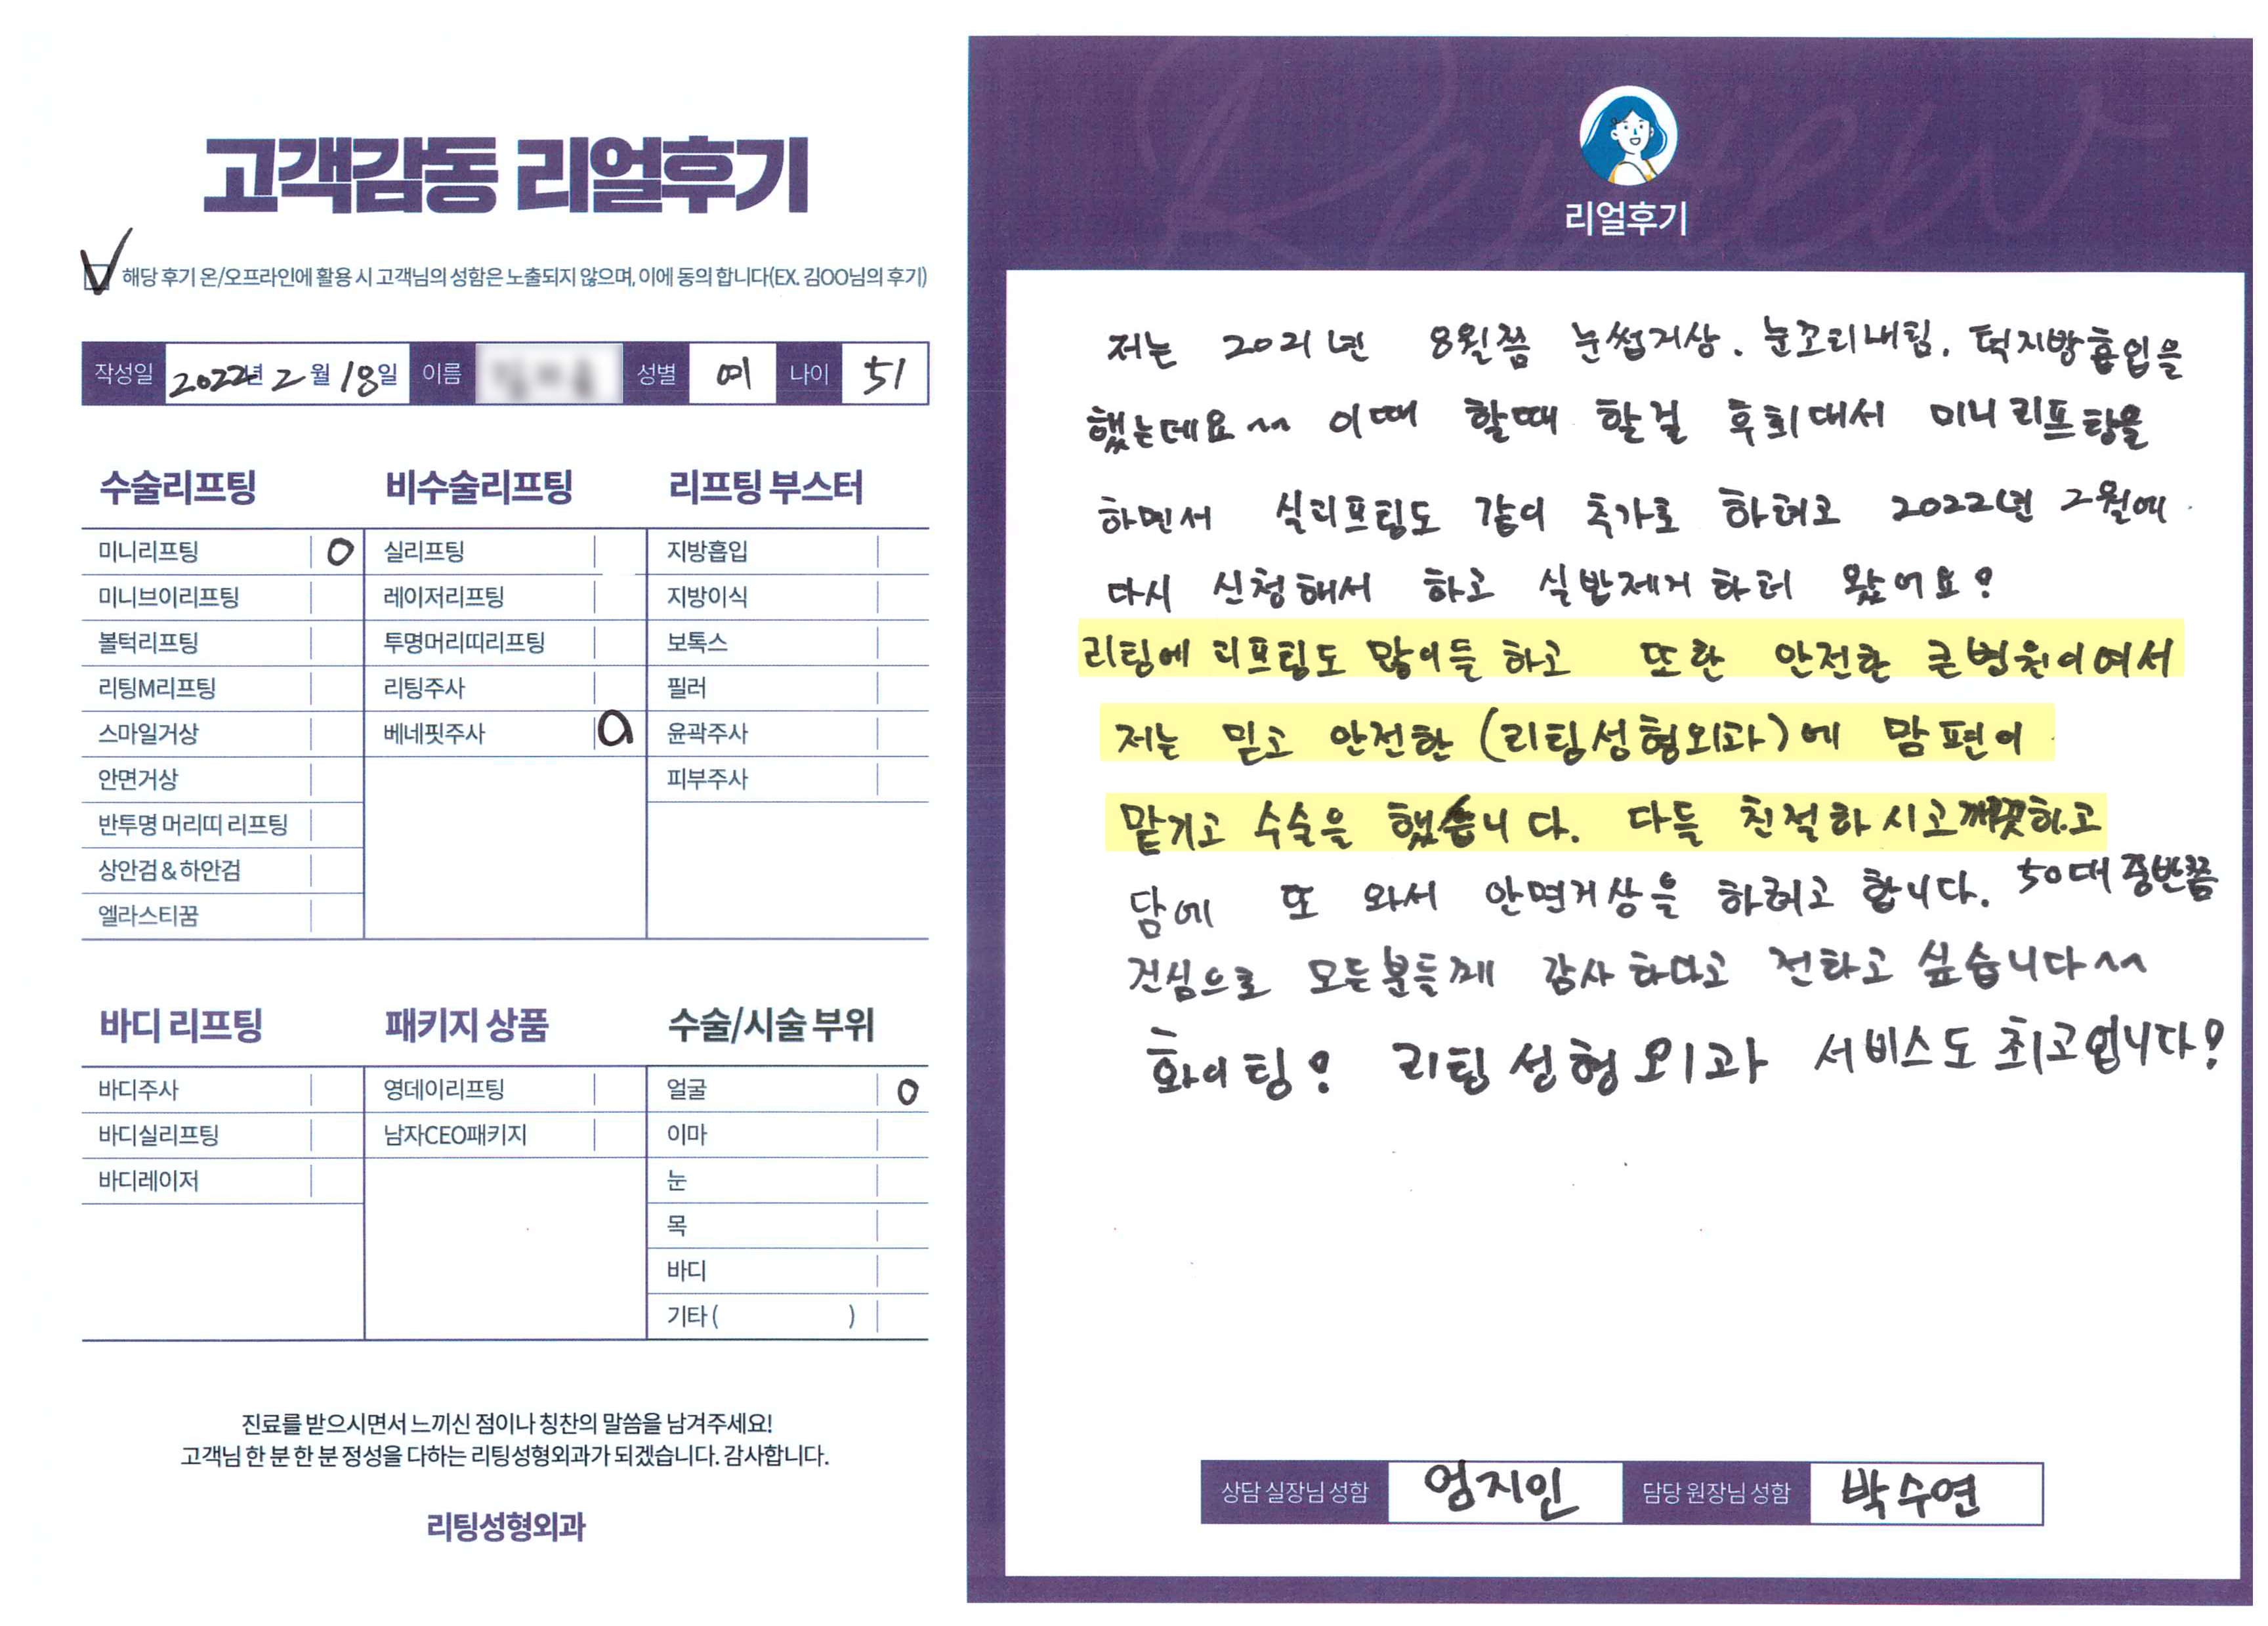 고객감동 리얼후기
해당 후기 온/오프라인에 활용 시 고객님의 성함은 노출되지 않으며, 이에 동의 합니다(EX. 김OO님의 후기)
작성일 2022년 2월 18일 이름 성별 여 나이 51
수술리프팅 비수술리프팅 리프팅 부스터
미니리프팅 O 실리프팅 지방흡입
미니브이리프팅 레이저리프팅 지방이식
볼턱리프팅 투명머리띠리프팅 보톡스
리팅M리프팅 리팅주사 필러
스마일거상 베네핏주사 O 윤곽주사
안면거상 피부주사
반투명 머리띠 리프팅
상안검 & 하안검
엘라스티꿈
바디 리프팅 패키지 상품 수술/시술 부위
바디주사 영데이리프팅 얼굴 O
바디실리프팅 남자CEO패키지 이마
바디레이저 눈
목
바디
기타 ( )
진료를 받으시면서 느끼신 점이나 칭찬의 말씀을 남겨주세요!
고객님 한 분 한 분 정성을 다하는 리팅성형외과가 되겠습니다. 감사합니다.
리팅성형외과
Review
리얼후기
저는 2021년 8월쯤 눈썹거상. 눈꼬리내림. 턱지방흡입을
했는데요^^ 이때 할때 할걸 후회대서 미니리프팅을
하면서 실리프팅도 같이 추가로 하려고 2022년 2월에
다시 신청해서 하고 실밥제거하러 왔어요?
리팅에 리프팅도 많이들 하고 또한 안전한 큰병원이여서
저는 믿고 안전한 (리팅성형외과)에 맘편이
맡기고 수술을 했습니다. 다들 친절하시고 깨끗하고
담에 또 와서 안면거상을 하려고 합니다. 50대 중반쯤
진심으로 모든분들께 감사하다고 전하고 싶습니다^^
화이팅? 리팅성형외과 서비스도 최고입니다?
상담 실장님 성함 엄지인 담당 원장님 성함 박수연